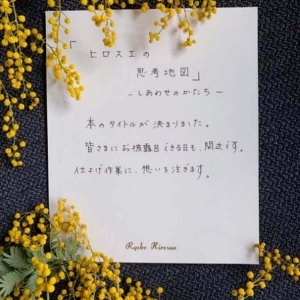 「ヒロスエの
思考地図」
－しあわせのかたち－
本のタイトルが 決まりました。
皆さまにお披露目できる日も、間近です。
仕上げ作業に、想いを注ぎます。
Ryoko Hirosue